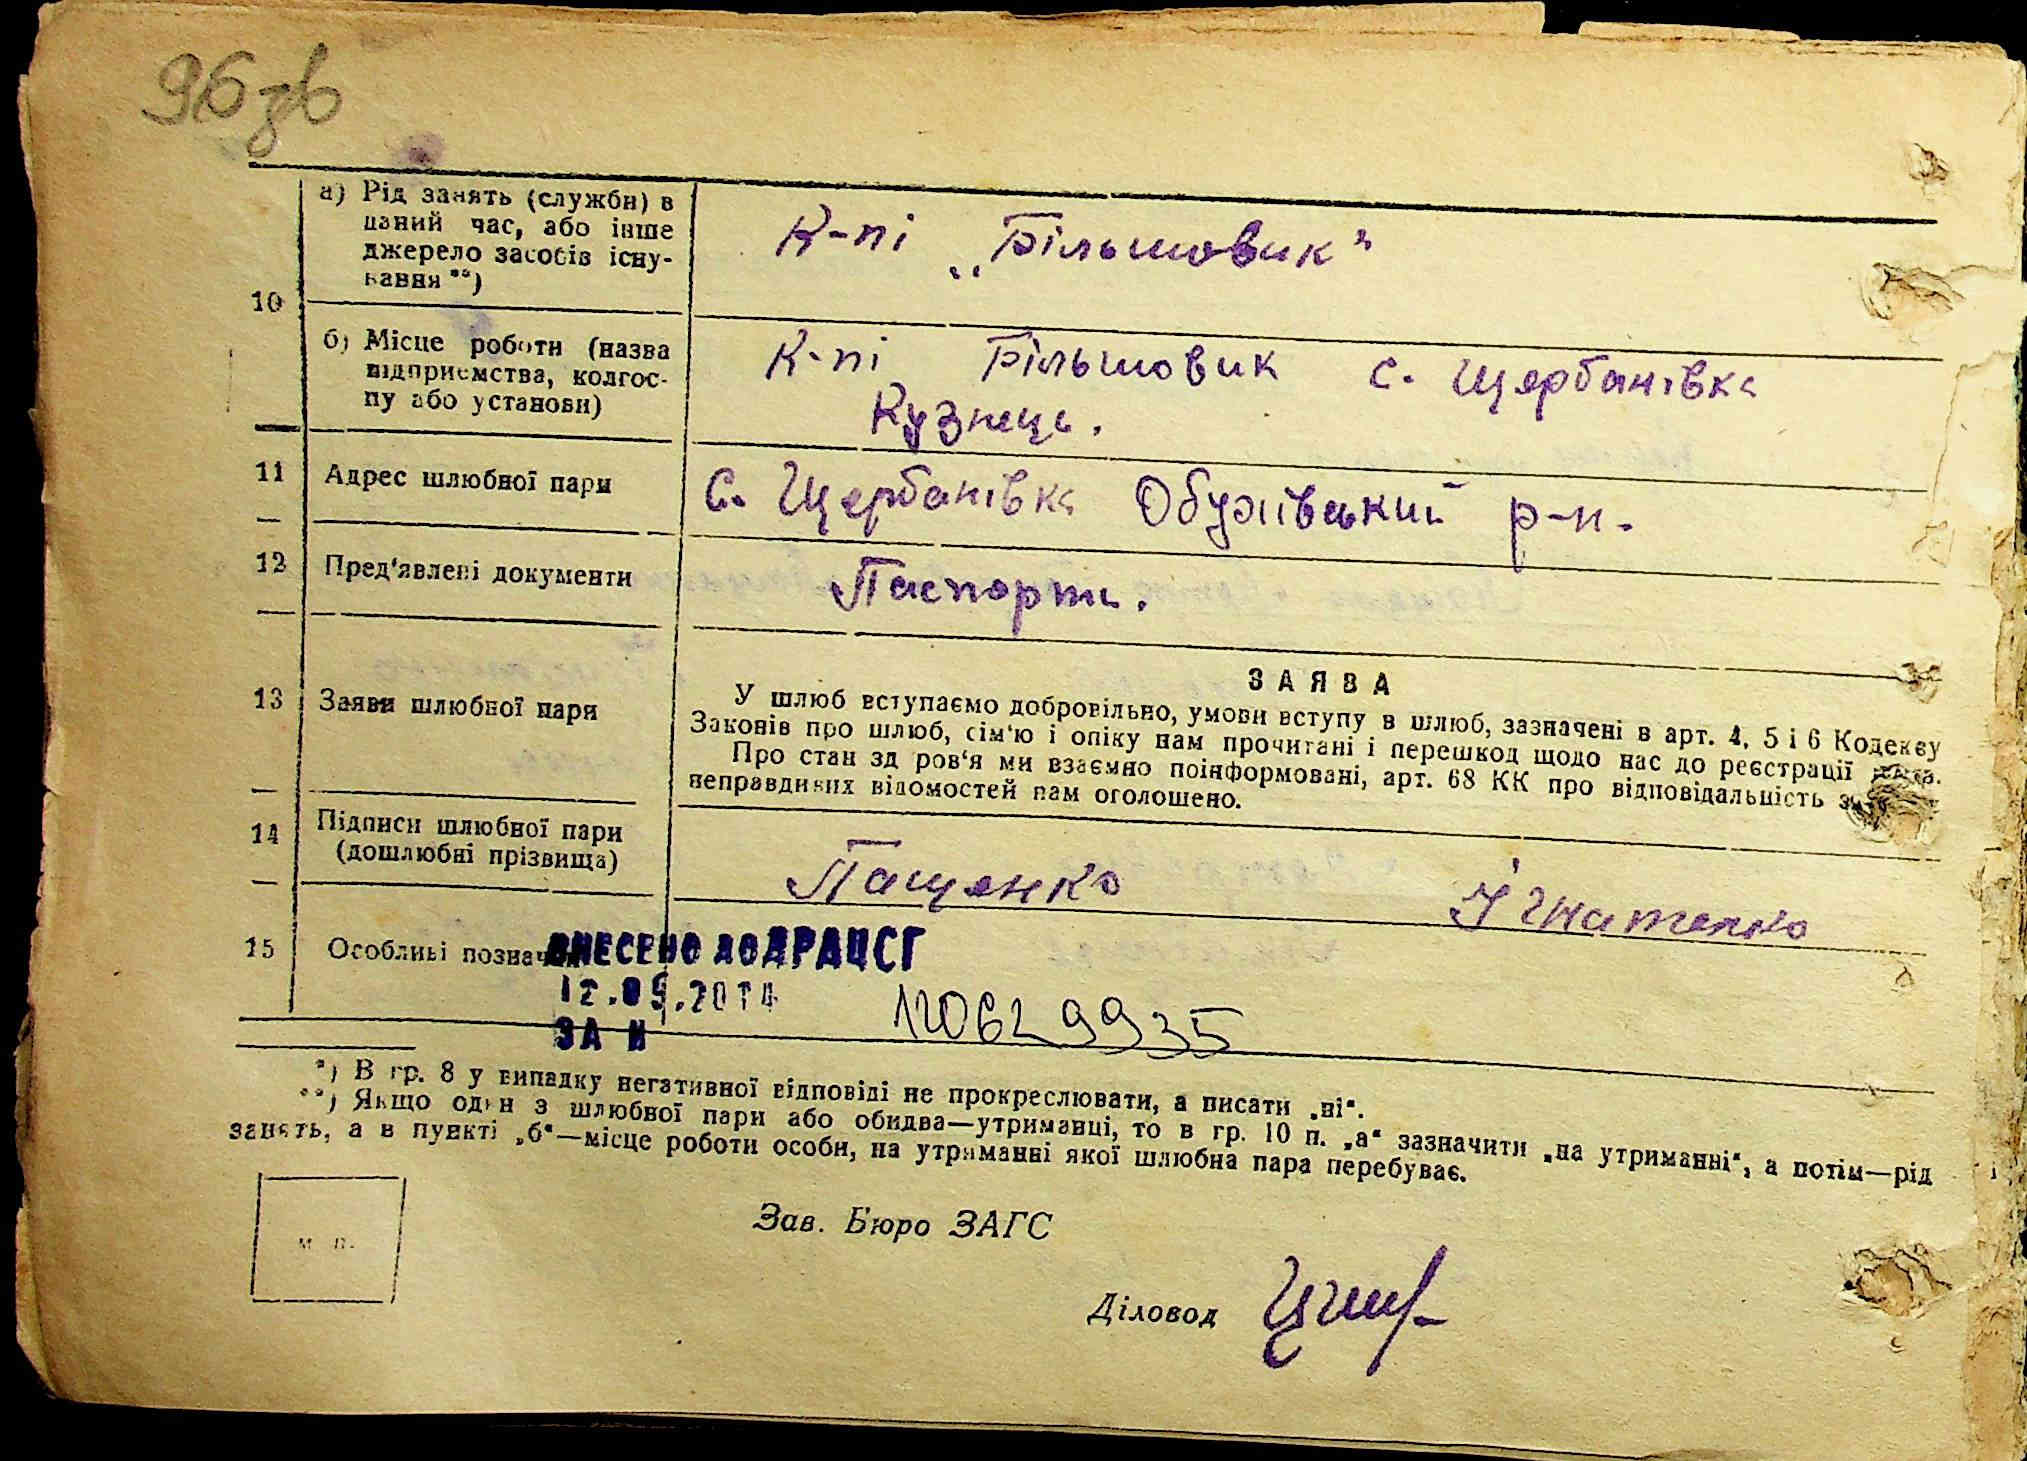 96зв
10
а) Рід занять (служби) в
даний час, або інше
джерело засобів існу-
вання **)
К-пі „Більшовик"
б) Місце роботи (назва
підприємства, колгос-
пу або установи)
К-пі Більшовик с. Щербанівка
Кузнець.
11 Адрес шлюбної пари
С. Щербанівка Обухівський р-н.
12 Пред'явлені документи
Паспорти.
13 Заяви шлюбної пари
ЗАЯВА
У шлюб вступаємо добровільно, умови вступу в шлюб, зазначені в арт. 4, 5 і 6 Кодексу
Законів про шлюб, сім'ю і опіку нам прочитані і перешкод щодо нас до реєстрації
Про стан здоров'я ми взаємно поінформовані, арт. 68 КК про відповідальність
неправдивих відомостей нам оголошено.
14 Підписи шлюбної пари
(дошлюбні прізвища)
Пащенко Ігнатенко
15 Особливі познач
ВНЕСЕНО ДО ДРАЦСГ
12.05.2014
ЗА N 120629935
*) В гр. 8 у випадку негативної відповіді не прокреслювати, а писати „ні".
**) Якщо один з шлюбної пари або обидва—утриманці, то в гр. 10 п. „а" зазначити „на утриманні", а потім—рід
занять, а в пункті „б"—місце роботи особи, на утриманні якої шлюбна пара перебуває.
м п.
Зав. Бюро ЗАГС
Діловод